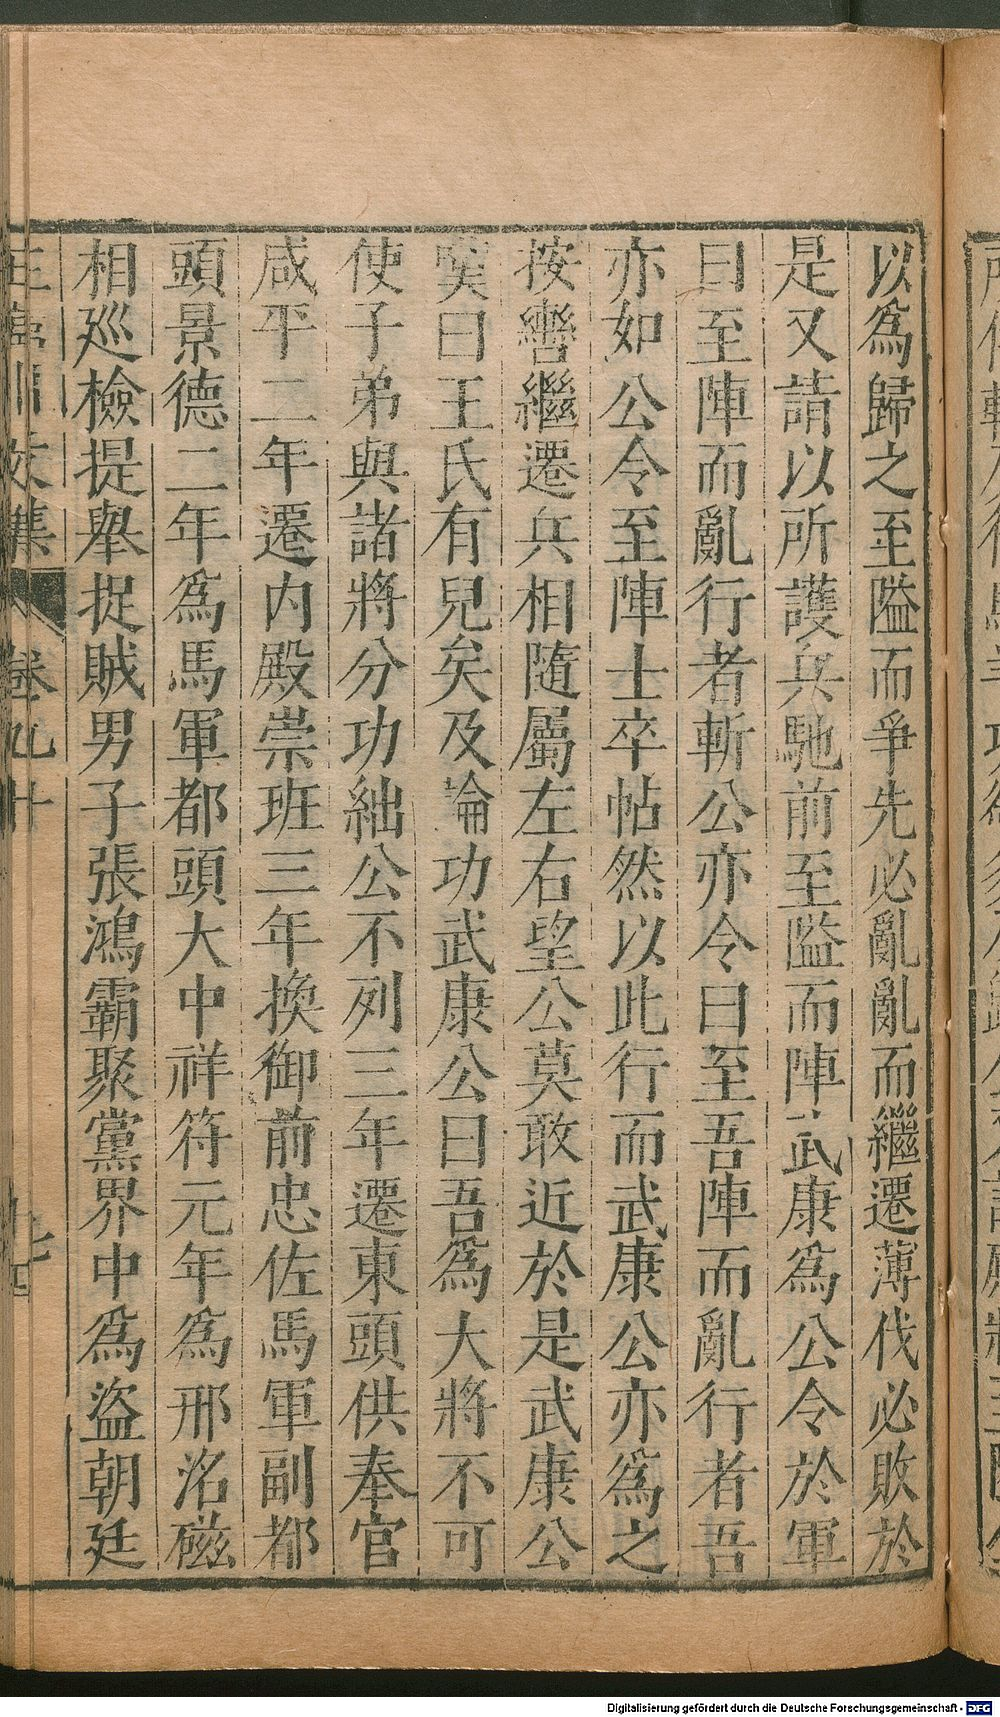 以爲歸之至隘而爭先必亂亂而繼遷薄伐必敗於
是又請以所護兵馳前至隘而陣武康爲公令於軍
曰至陣而亂行者斬公亦令曰至吾陣而亂行者吾
亦如公令至陣士卒帖然以此行而武康公亦爲之
按轡繼遷兵相隨屬左右望公莫敢近於是武康公
歎曰王氏有兒矣及論功武康公曰吾爲大將不可
使子弟與諸將分功絀公不列三年遷東頭供奉官
咸平二年遷内殿崇班三年換御前忠佐馬軍副都
頭景德二年爲馬軍都頭大中祥符元年爲邢洺磁
相巡檢提舉捉賊男子張鴻霸聚黨界中爲盜朝廷
文集 卷九十
Digitalisierung gefördert durch die Deutsche Forschungsgemeinschaft - DFG